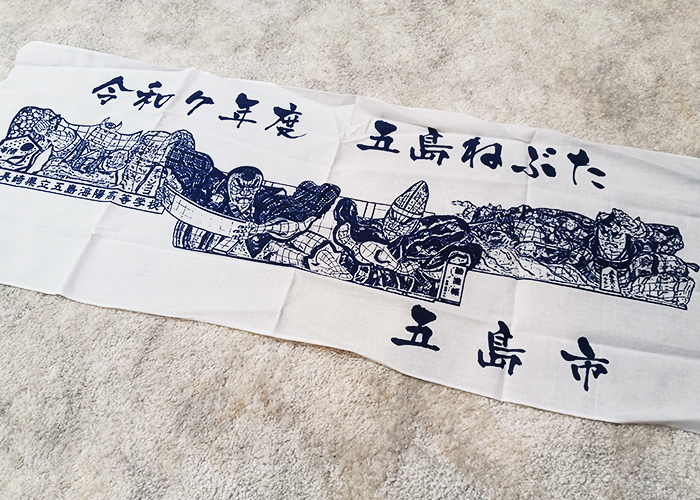 令和7年度 五島ねぶた
長崎県立五島海陽高等学校
五島市